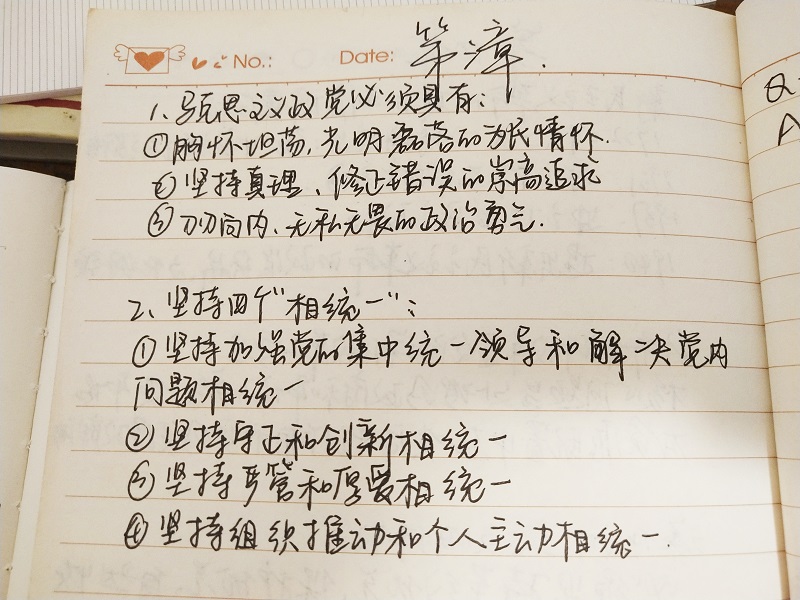 No.: Date: 第 章.
1、马克思主义政党必须具有：
①胸怀坦荡，光明磊落的为民情怀.
②坚持真理、修正错误的崇高追求
③刀刃向内、无私无畏的政治勇气.
2、坚持四个"相统一"：
①坚持加强党的集中统一领导和解决党内
问题相统一
②坚持守正和创新相统一
③坚持严管和厚爱相统一
④坚持组织推动和个人主动相统一.
Q
A